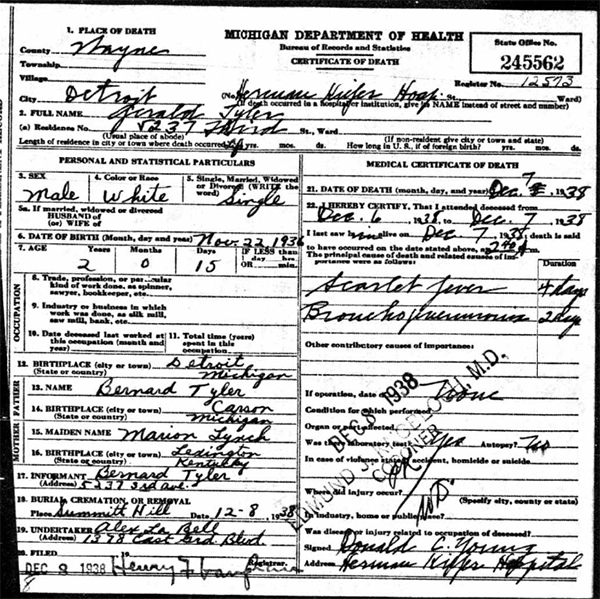 1. PLACE OF DEATH
County Wayne
Township
Village
City Detroit
MICHIGAN DEPARTMENT OF HEALTH
Bureau of Records and Statistics
CERTIFICATE OF DEATH
State Office No.
245562
Register No. 12573
(No. Herman Kiefer Hosp. St. Ward)
(If death occurred in a hospital or institution, give its NAME instead of street and number)
2. FULL NAME Gerald Tyler
(a) Residence No. 5237 Third St., Ward
(Usual place of abode) (If non-resident give city or town and state)
Length of residence in city or town where death occurred yrs. mos. ds. How long in U. S., if of foreign birth? yrs. mos. ds.
PERSONAL AND STATISTICAL PARTICULARS
3. SEX Male
4. Color or Race White
5. Single, Married, Widowed or Divorced (WRITE the word) Single
5a. If married, widowed or divorced
HUSBAND of
(or) WIFE of
6. DATE OF BIRTH (Month, day and year) Nov. 22 1936
7. AGE Years Months Days IF LESS than
1 day hrs.
OR min.
2 0 15
OCCUPATION
8. Trade, profession, or particular
kind of work done, as spinner,
sawyer, bookkeeper, etc.
9. Industry or business in which
work was done, as silk mill,
saw mill, bank, etc.
10. Date deceased last worked at
this occupation (month and
year)
11. Total time (years)
spent in this
occupation
12. BIRTHPLACE (city or town) Detroit
(State or country) Michigan
FATHER
13. NAME Bernard Tyler
14. BIRTHPLACE (city or town) Carson
(State or country) Michigan
MOTHER
15. MAIDEN NAME Marion Lynch
16. BIRTHPLACE (city or town) Lexington
(State or country) Kentucky
17. INFORMANT Bernard Tyler
(Address) 5237 3rd Ave.
18. BURIAL, CREMATION, OR REMOVAL
Place Summitt Hill Date 12-8 1938
19. UNDERTAKER Alex La Bell
1378 East Grd Blvd.
20. FILED
DEC 8 1938 Henry F. Vaughan
Registrar.
MEDICAL CERTIFICATE OF DEATH
21. DATE OF DEATH (month, day, and year) Dec. 7 1938
22. I HEREBY CERTIFY, That I attended deceased from
Dec. 6 1938 to Dec. 7 1938
I last saw him alive on Dec 7 1938, death is said
to have occurred on the date stated above, at m.
The principal cause of death and related causes of importance were as follows:
Duration
Scarlet fever 4 days
Bronchopneumonia 2 days
Other contributory causes of importance:
If operation, date of None
Condition for which performed
Organ or part affected
Was there laboratory test? Yes Autopsy? No
In case of violence state if accident, homicide or suicide
Where did injury occur?
(Specify city, county or state)
In industry, home or public place?
Was disease or injury related to occupation of deceased?
Signed Donald C. Young
Address Herman Kiefer Hospital
DEC 8 1938
M.D.
CORONER